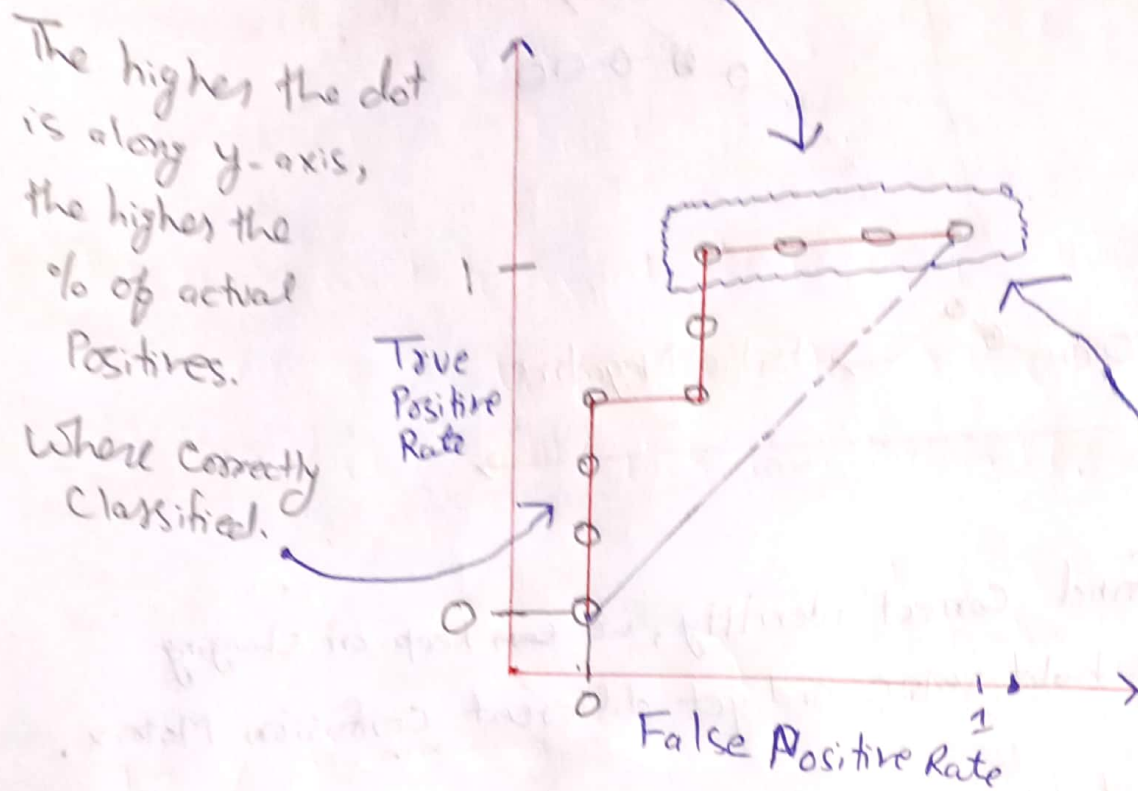 The higher the dot
is along y-axis,
the higher the
% of actual
Positives.
Where Correctly
Classified.
1
True
Positive
Rate
0
0
1
False Positive Rate